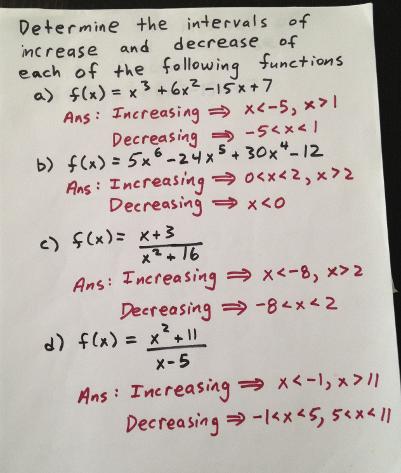 Determine the intervals of
increase and decrease of
each of the following functions
a) f(x) = x³ + 6x² - 15x + 7
Ans: Increasing ⇒ x<-5, x>1
Decreasing ⇒ -5<x<1
b) f(x) = 5x⁶ - 24x⁵ + 30x⁴ - 12
Ans: Increasing ⇒ 0<x<2, x>2
Decreasing ⇒ x<0
c) f(x) = x+3
x² + 16
Ans: Increasing ⇒ x<-8, x>2
Decreasing ⇒ -8<x<2
d) f(x) = x² + 11
x-5
Ans: Increasing ⇒ x<-1, x>11
Decreasing ⇒ -1<x<5, 5<x<11